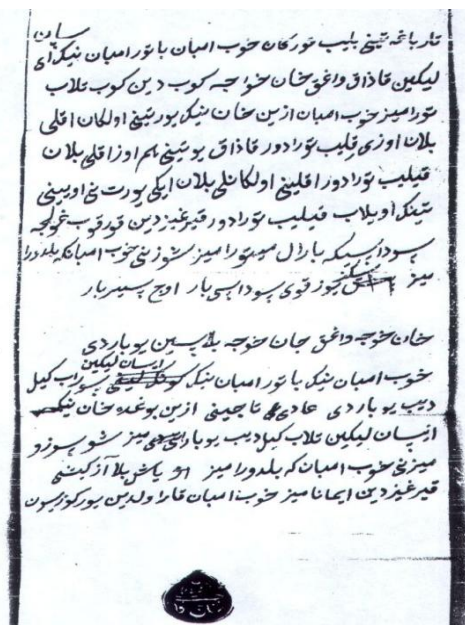 تارباغه تینی بیلیب تورکان خوب امبان باتور امبان نیک ای سان
لیکین قاذاق واغق خان خواجه کوب دین کوب تلاب
تورامیز خوب امبان ازین خان نیک یورتینی اولکان اقلی
بلان اوزی قیلیب تورادور قاذاق یوتینی هم اوز اقلی بلان
قیلیب تورادور اقلینی اولکانلی بلان ایکی یورت نی اویینی
تینک اویلاب قیلیب تورادور قیرغیزدین قورقوب غولجه
سوداسیکه بارال میتورامیز شوزنی خوب امبانکه بلدورا
میز یوز قوی سوداسی بار اوچ سیز بار
خان خوجه واغق جان خوجه بلاسین یوباردی
خوب امبان نیک باتور امبان نیک ایسان لیکین سوراب کیل
دیب یوباردی عادی تاجینی ازین بوغده خان نیک
ایسان لیکین تلاب کیل دیب یوباردی میز شو سوزو
میزنی خوب امبان که بلدورامیز یاش بلا
قیرغیزدین ایمانامیز خوب امبان قاراولدین یورکوزسون